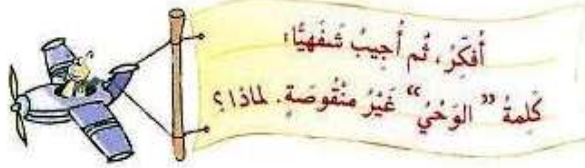 أُفَكِّرُ، ثُم أُجِيبُ شَفَهيًّا:
كَلِمةُ "الوَحْيُ" غَيْرُ مَنْقُوصَةٍ. لماذا؟